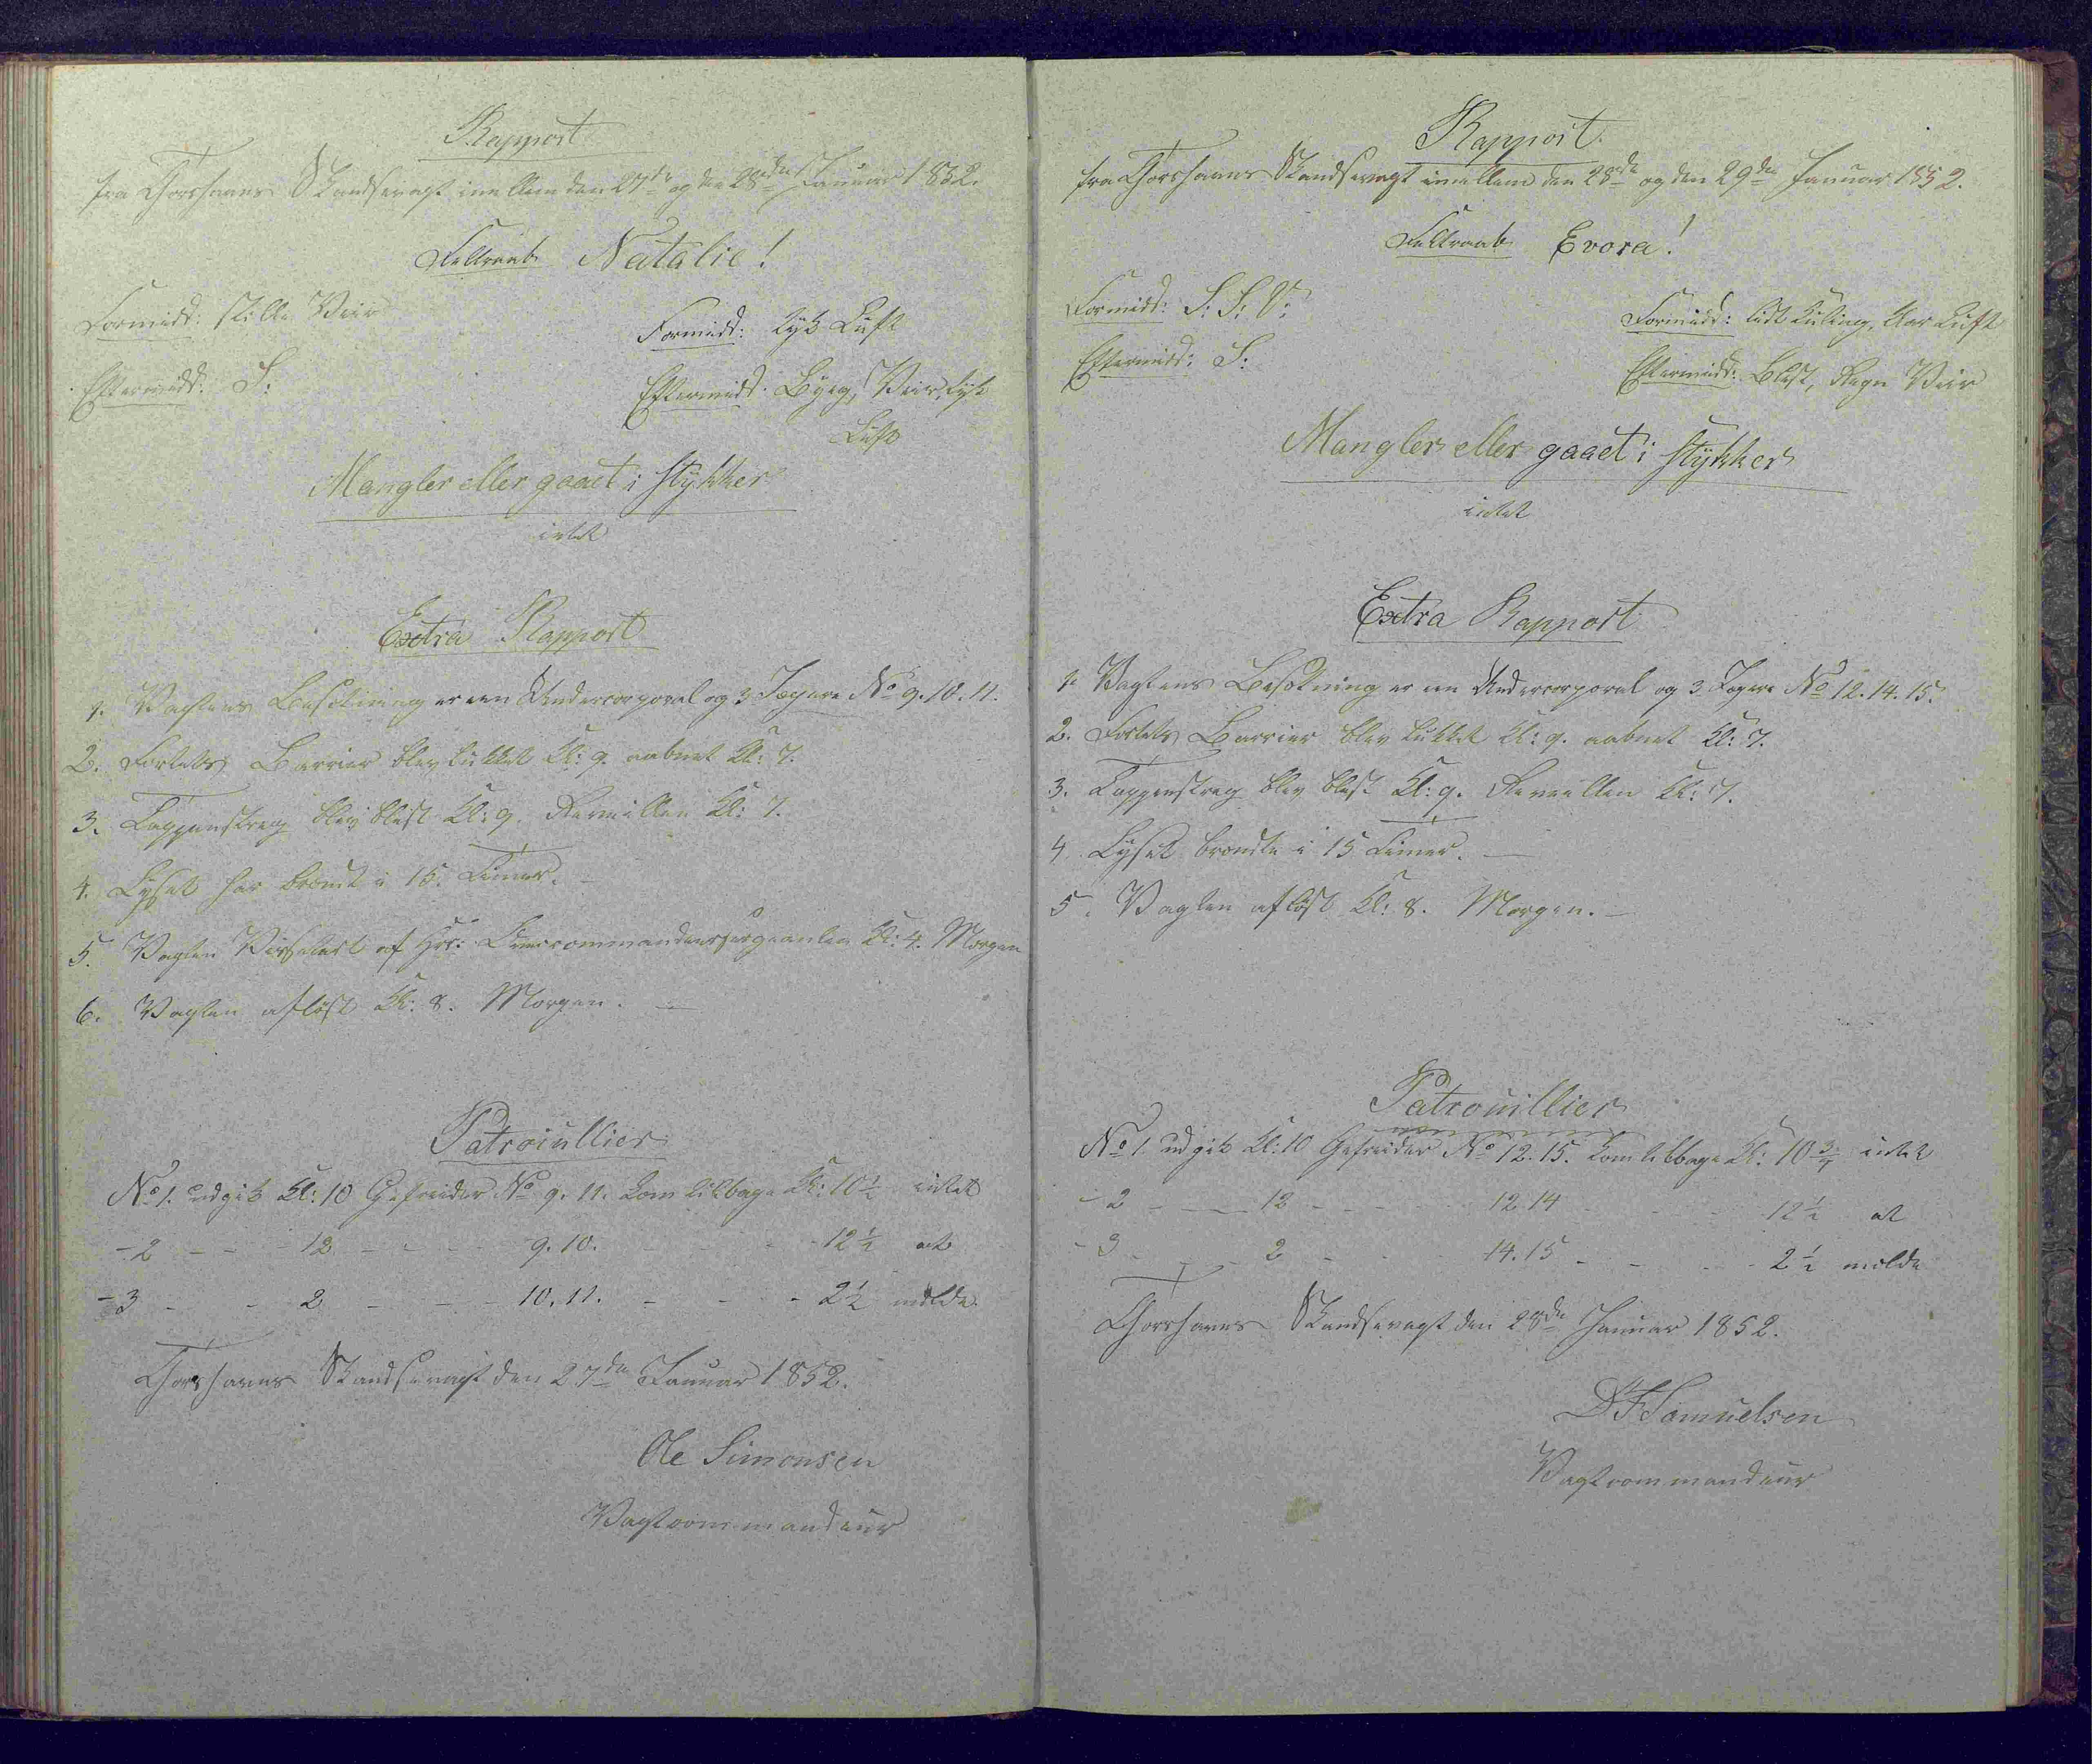 Rapport
fra Thorshavns Skandsevagt imellem den 27de og den 28de Januar 1852.
Feltraab Natalie!
Formidd: stille Veir
Formidd: tyk Luft
Eftermidd: S:
Eftermidd: Byeg, Veir, tyk
Luft
Mangler eller gaaet i stykker
intet
Extra Rapport
1. Vagtens Besætning er een Undercorporal og 3 Jægere No 9. 10. 11.
2. Fortets Barrier blev lukket Kl: 9. aabnet Kl: 7.
3. Tappenstreg blev blæst Kl: 9. Reveillen Kl: 7.
4. Lyset har brændt i 15. Timer. –
5. Vagten Visiteret af Hr: Commandeersergeanten Kl: 4. Morgen
6. Vagten afløst Kl: 8. Morgen. —
Patroiullier
No 1. udgik Kl: 10 Gefreider No 9. 11. kom tilbage Kl: 10½ intet
- 2 - - - 12 - - - 9. 10. - - - 12½ at
- 3 - - 2 - - - 10. 11. - - - 2½ melde
Thorshavns Skandsevagt den 27de Januar 1852.
Ole Simonsen
Vagtcommandeur
Rapport.
fra Thorshavns Skandsevagt imellem den 28de og den 29de Januar 1852.
Feltraab Evora!
Formidd: S: S: V:
Formidd: lidt Kuling, klar Luft
Eftermidd: S:
Eftermidd: Blæst, Regn Veir
Mangler eller gaaet i stykker
intet
Extra Rapport
1. Vagtens Besætning er en Undercorporal og 3 Jægere No 12. 14. 15.
2. Fortets Barrier blev lukket Kl: 9. aabnet Kl: 7.
3. Tappenstreg blev blæst Kl: 9. Reveillen Kl: 7.
4. Lyset brændte i 15 Timer. —
5. Vagten afløst Kl: 8. Morgen. –
Patrouillier
No 1. udgik Kl: 10 Gefreider No 12. 15. kom tilbage Kl: 10¾ intet
- 2 - - 12 - - - 12 14 - - - 12½ at
- 3 - - 2 - - - 14. 15 - - - 2½ melde
Thorshavns Skandsevagt den 28de Januar 1852.
D F Samuelsen
Vagtcommandeur